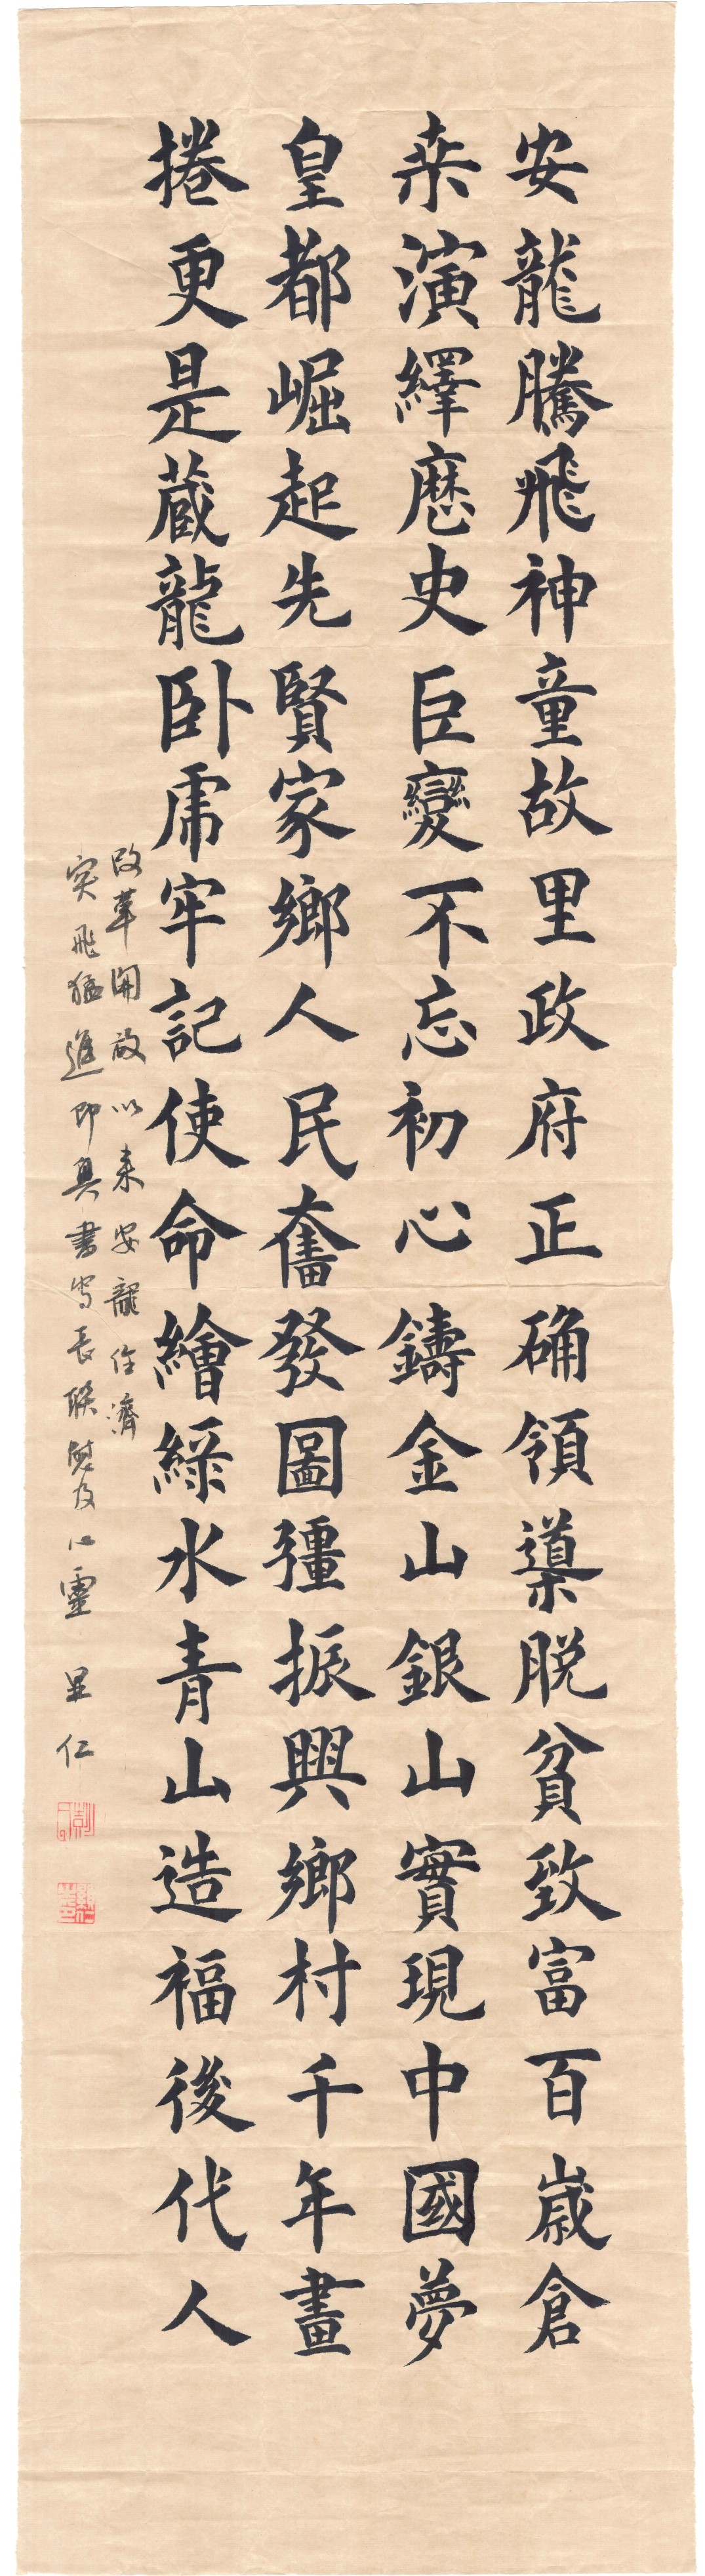 安龍騰飛神童故里政府正确領導脱貧致富百歲倉
桒演繹歷史巨變不忘初心鑄金山銀山實現中國夢
皇都崛起先賢家鄉人民奮發圖彊振興鄉村千年畫
捲更是蔵龍卧虎牢記使命繪綠水青山造福後代人
改革開放以来安龍经濟
突飛猛進即興書写長联慰及心靈 显仁